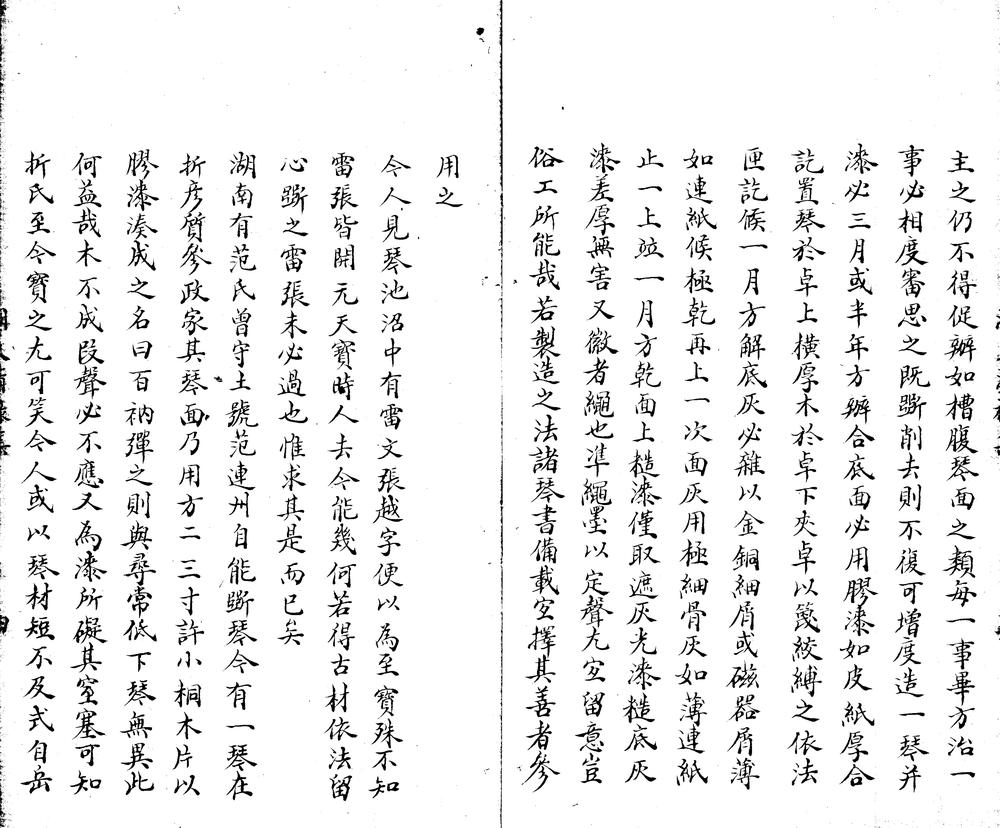 主之仍不得促辦如槽腹琴面之類每一事畢方治一
事必相度審思之既斵削去則不復可增度造一琴并
漆必三月或半年方辦合底面必用膠漆如皮紙厚合
訖置琴於卓上橫厚木於卓下夾卓以篾絞縛之依法
匣訖候一月方解底灰必雜以金銅細屑或磁器屑薄
如連紙候極乾再上一次面灰用極細骨灰如薄連紙
止一上竝一月方乾面上糙漆僅取遮灰光漆糙底灰
漆差厚無害又徽者繩也凖繩墨以定聲尤宜留意豈
俗工所能哉若製造之法諸琴書備載宜擇其善者參
用之
今人見琴池沼中有雷文張越字便以為至寶殊不知
雷張皆開元天寶時人去今能幾何若得古材依法留
心斵之雷張未必過也惟求其是而已矣
湖南有范氏曾守土號范連州自能斵琴今有一琴在
折彦質參政家其琴面乃用方二三寸許小桐木片以
膠漆湊成之名曰百衲彈之則與尋常低下琴無異此
何益哉木不成段聲必不應又為漆所礙其窒塞可知
折氏至今寶之尤可笑今人或以琴材短不及式自岳